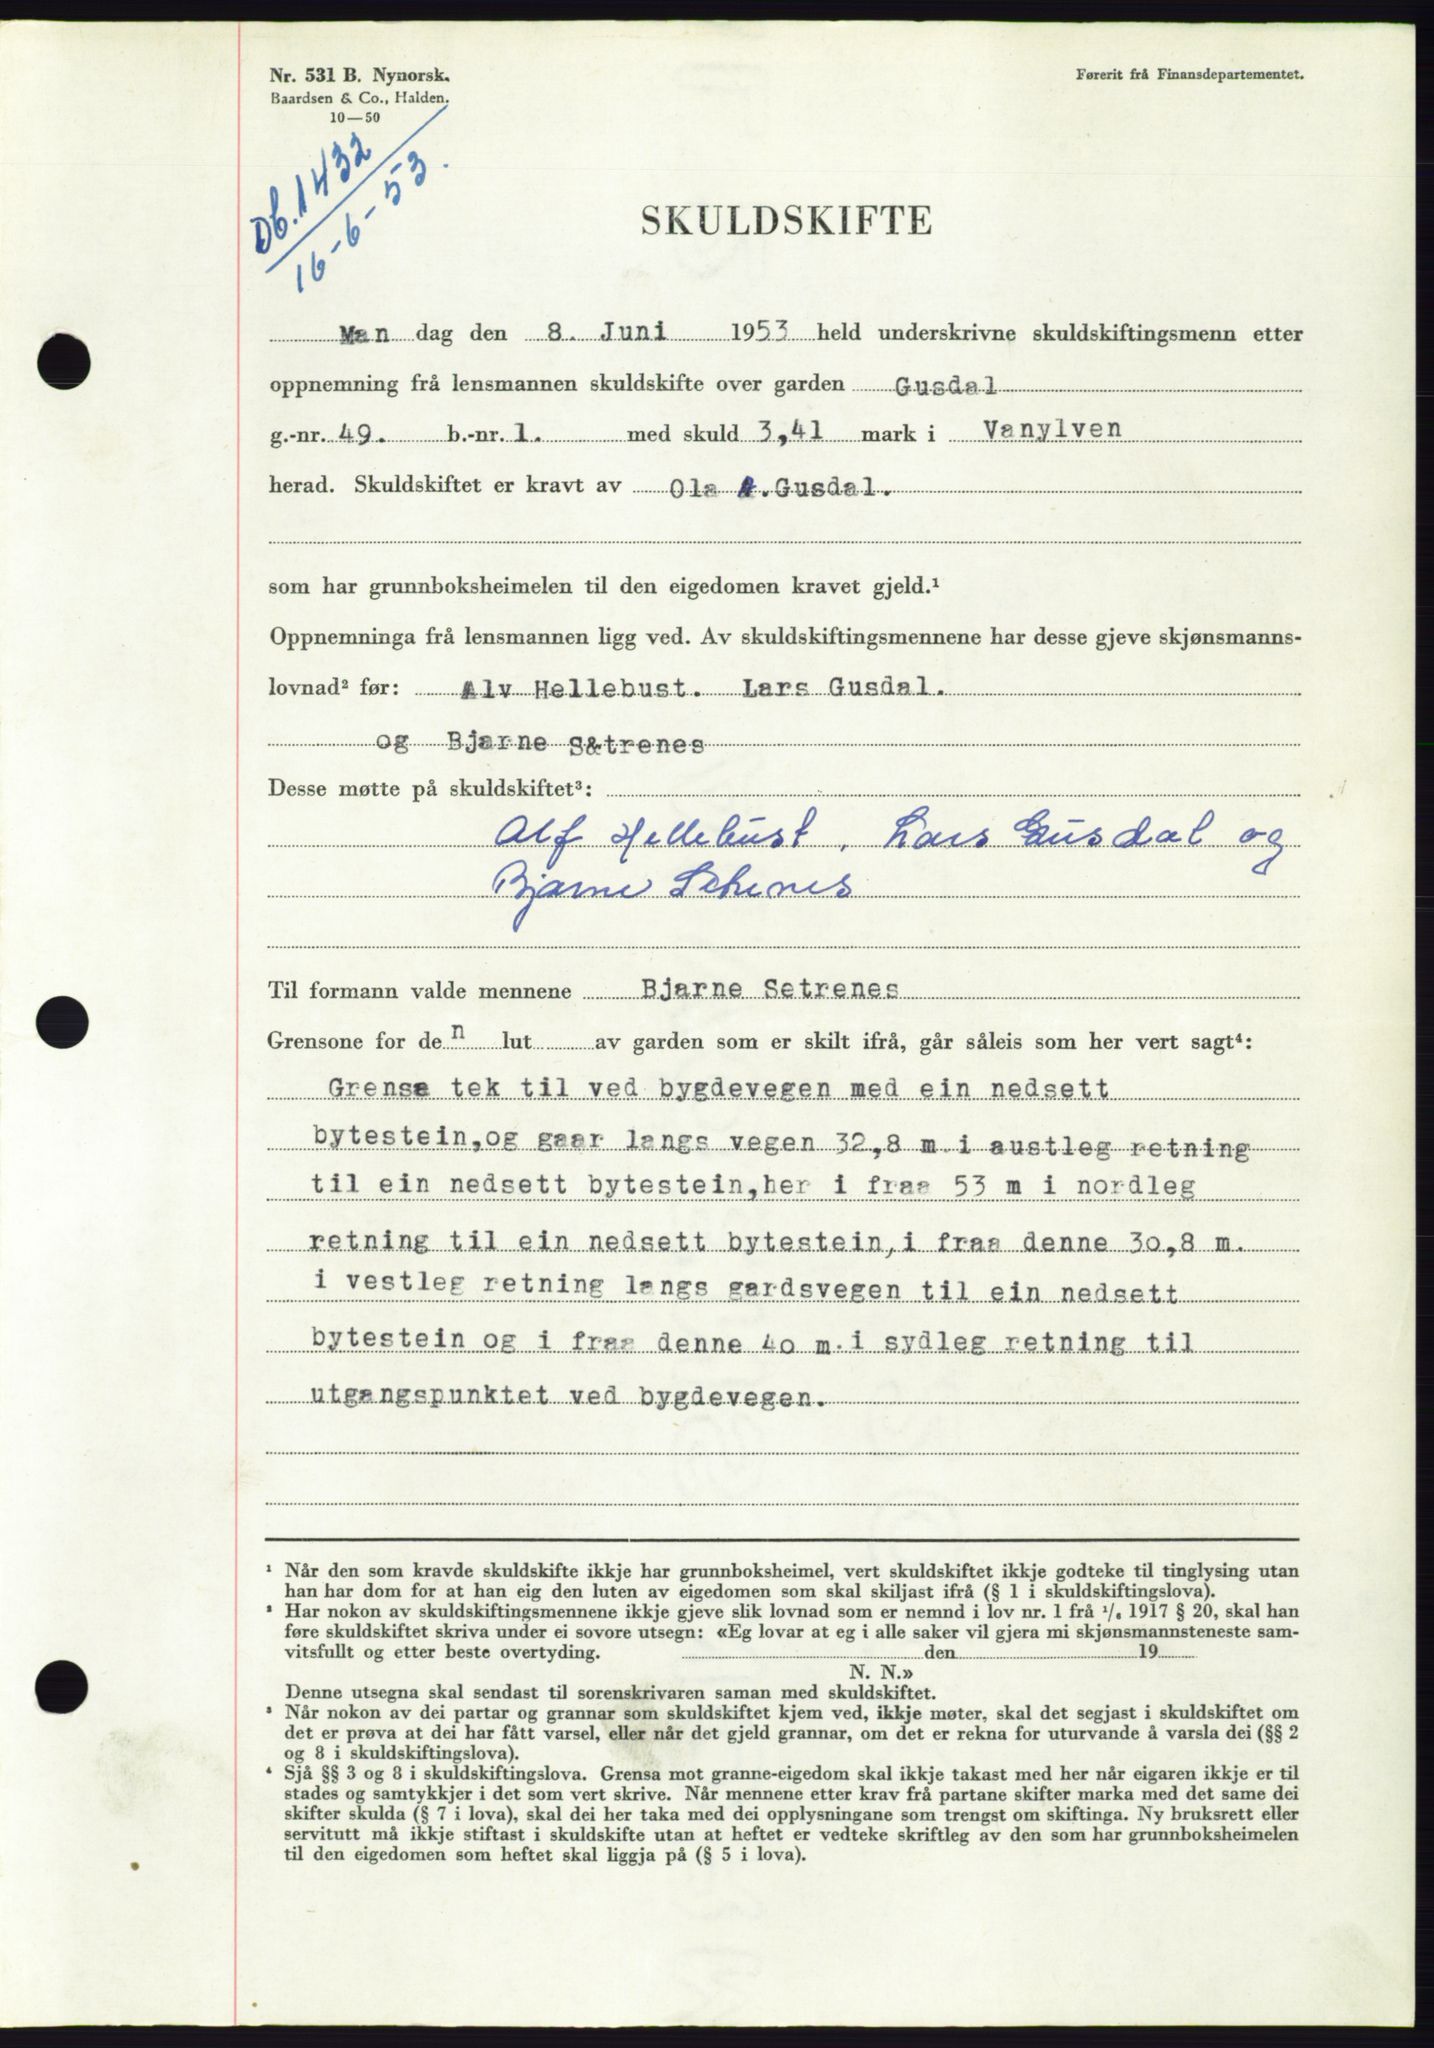 Nr. 531 B. Nynorsk.
Baardsen & Co., Halden.
10—50
Førerit frå Finansdepartementet.
Db. 1432
16-6-53.
SKULDSKIFTE
Man dag den 8. Juni 1953 held underskrivne skuldskiftingsmenn etter
oppnemning frå lensmannen skuldskifte over garden Gusdal
g.-nr. 49. b.-nr. 1. med skuld 3,41 mark i Vanylven
herad. Skuldskiftet er kravt av Ola A. Gusdal.
som har grunnboksheimelen til den eigedomen kravet gjeld.¹
Oppnemninga frå lensmannen ligg ved. Av skuldskiftingsmennene har desse gjeve skjønsmanns-
lovnad² før: Alv Hellebust. Lars Gusdal.
og Bjarne S&trenes
Desse møtte på skuldskiftet³:
Alf Hellebust, Lars Gusdal og
Bjarne Setrenes
Til formann valde mennene Bjarne Setrenes
Grensone for den lut av garden som er skilt ifrå, går såleis som her vert sagt⁴:
Grense tek til ved bygdevegen med ein nedsett
bytestein,og gaar langs vegen 32,8 m. i austleg retning
til ein nedsett bytestein,her i fraa 53 m i nordleg
retning til ein nedsett bytestein, i fraa denne 30,8 m.
i vestleg retning langs gardsvegen til ein nedsett
bytestein og i fraa denne 40 m. i sydleg retning til
utgangspunktet ved bygdevegen.
¹ Når den som kravde skuldskifte ikkje har grunnboksheimel, vert skuldskiftet ikkje godteke til tinglysing utan
han har dom for at han eig den luten av eigedomen som skal skiljast ifrå (§ 1 i skuldskiftingslova).
² Har nokon av skuldskiftingsmennene ikkje gjeve slik lovnad som er nemnd i lov nr. 1 frå ¹/₆ 1917 § 20, skal han
føre skuldskiftet skriva under ei sovore utsegn: «Eg lovar at eg i alle saker vil gjera mi skjønsmannsteneste sam-
vitsfullt og etter beste overtyding. den 19
N. N.»
Denne utsegna skal sendast til sorenskrivaren saman med skuldskiftet.
³ Når nokon av dei partar og grannar som skuldskiftet kjem ved, ikkje møter, skal det segjast i skuldskiftet om
det er prøva at dei har fått varsel, eller når det gjeld grannar, om det er rekna for uturvande å varsla dei (§§ 2
og 8 i skuldskiftingslova).
⁴ Sjå §§ 3 og 8 i skuldskiftingslova. Grensa mot granne-eigedom skal ikkje takast med her når eigaren ikkje er til
stades og samtykkjer i det som vert skrive. Når mennene etter krav frå partane skifter marka med det same dei
skifter skulda (§ 7 i lova), skal dei her taka med dei opplysningane som trengst om skiftinga. Ny bruksrett eller
servitutt må ikkje stiftast i skuldskifte utan at heftet er vedteke skriftleg av den som har grunnboksheimelen
til den eigedomen som heftet skal liggja på (§ 5 i lova).